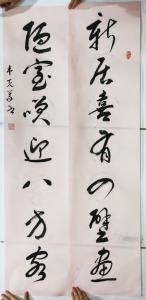 新居喜有四壁畫
陋室咲迎八方客